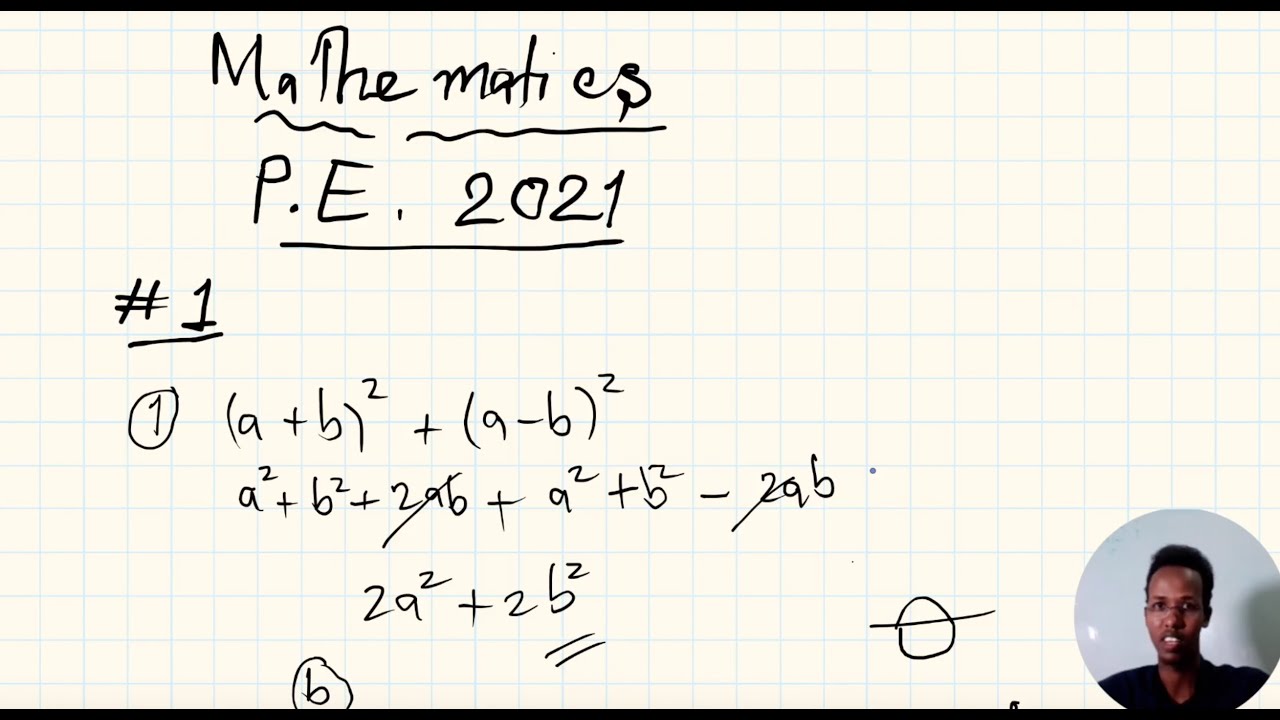 Mathematics
P.E. 2021
#1
① (a+b)² + (a-b)²
a² + b² + 2ab + a² + b² - 2ab
2a² + 2b²
ⓑ